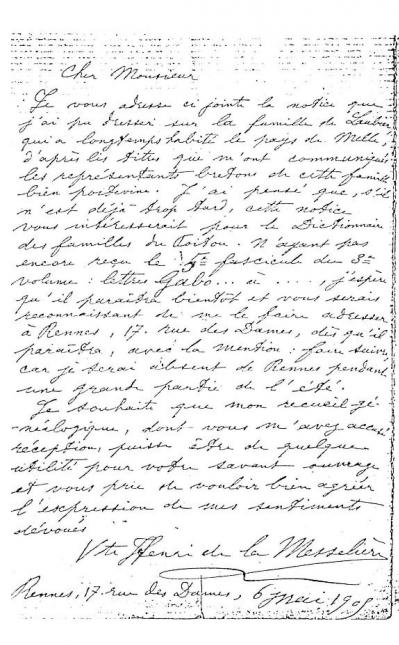 Cher Monsieur
Je vous adresse ci jointe la notice que
j'ai pu dresser sur la famille de Laubier
qui a longtemps habité le pays de Melle,
d'après les titres que m'ont communiqués
les représentants bretons de cette famille
bien poitevine. J'ai pensé que, s'il
n'est déjà trop tard, cette notice
vous intéresserait pour le Dictionnaire
des familles du Poitou. N'ayant pas
encore reçu le 5e fascicule du 3e
volume : lettres Gabo... à ....., j'espère
qu'il paraîtra bientôt et vous serais
reconnaissant de me le faire adresser
à Rennes, 17. rue des Dames, dès qu'il
paraîtra, avec la mention : faire suivre
car je serai absent de Rennes pendant
une grande partie de l'été.
Je souhaite que mon recueil gé-
néalogique, dont vous m'avez accusé
réception, puisse être de quelque
utilité pour votre savant ouvrage
et vous prie de vouloir bien agréer
l'expression de mes sentiments
dévoués
Vte Henri de la Messelière
Rennes, 17. rue des Dames, 6 mai